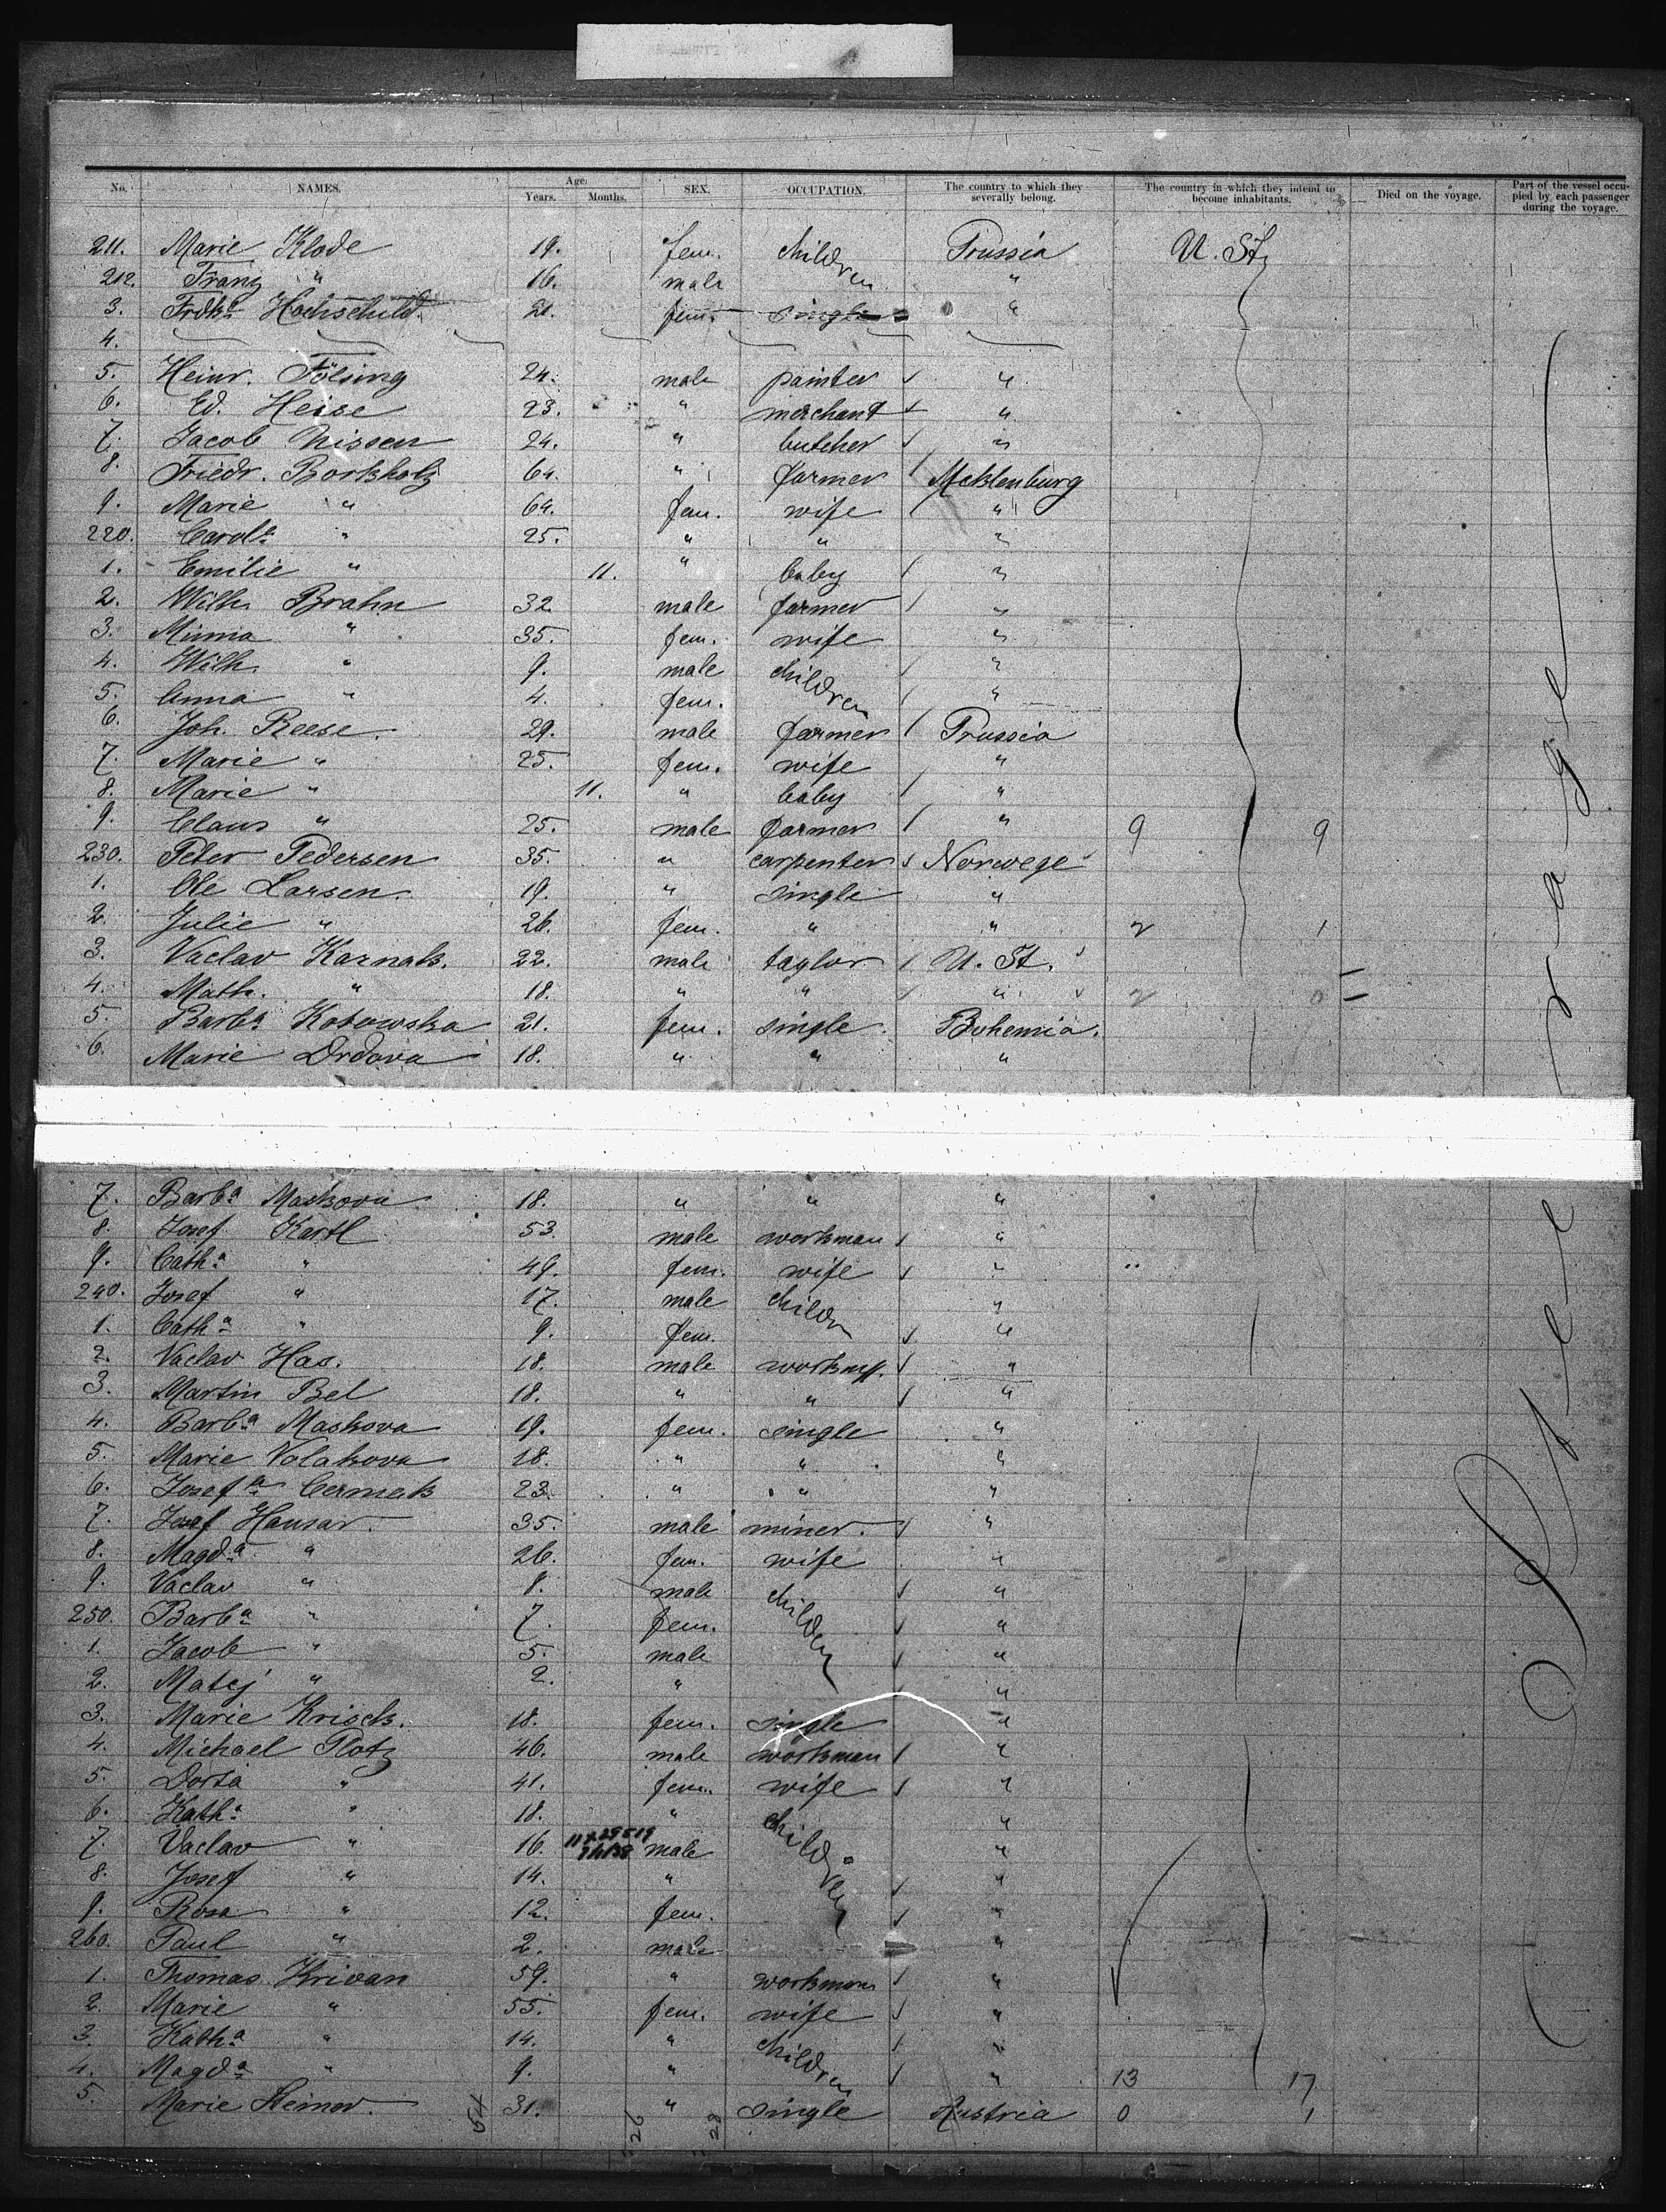 No. NAMES. Age. Years. Months. SEX. OCCUPATION. The country to which they severally belong. The country in which they intend to become inhabitants. Died on the voyage. Part of the vessel occupied by each passenger during the voyage.
211. Marie Klode 19. fem. children Prussia U. St.
212. Franz " 16. male "
3. Frdka Hochschild 21. fem. single "
4.
5. Heinr. Fölsing 24. male painter "
6. Ed. Heise 23. " merchant "
7. Jacob Nissen 24. " butcher "
8. Friedr. Borkholz 64. " farmer Meklenburg
9. Marie " 64. fem. wife "
220. Carole " 25. " " "
1. Emilie " 11. " baby "
2. Wilh. Brahn 32. male farmer "
3. Minna " 35. fem. wife "
4. Wilh. " 9. male children "
5. Anna " 4. fem. "
6. Joh. Reese 29. male farmer Prussia
7. Marie " 25. fem. wife "
8. Marie " 11. " baby "
9. Claus " 25. male farmer " 9 9
230. Peter Pedersen 35. " carpenter Norwege
1. Ole Larsen. 19. " single "
2. Julie " 26. fem. " " 2 1
3. Vaclav Karnak. 22. male taylor U. St.
4. Math. " 18. " " " 2 0
5. Barba Kobowska 21. fem. single Bohemia.
6. Marie Drdova 18. " " "
7. Barba Maskova 18. " " "
8. Josef Kartl 53. male workman "
9. Catha " 49. fem. wife "
240. Josef " 17. male childr "
1. Catha " 9. fem. "
2. Vaclav Has. 18. male workm. "
3. Martin Bel 18. " " "
4. Barba Maskova 19. fem. single "
5. Marie Volakova 18. " " "
6. Josefa Cermak 23. " " "
7. Josef Hausar. 35. male miner. "
8. Magda " 26. fem. wife "
9. Vaclav " 8. male children "
250. Barba " 7. fem. "
1. Jacob " 5. male "
2. Matej " 2. " "
3. Marie Krisch. 18. fem. single "
4. Michael Plotz 46. male workman "
5. Dorta " 41. fem. wife "
6. Katha " 18. " children "
7. Vaclav " 16. male "
8. Josef " 14. " "
9. Rosa " 12. fem. "
260. Paul " 2. male "
1. Thomas Krivan 59. " workman "
2. Marie " 55. fem. wife "
3. Katha " 14. " children "
4. Magda " 9. " " 13 17
5. Marie Heiner. 31. " single Austria 0 1
54 26 28
Steerage